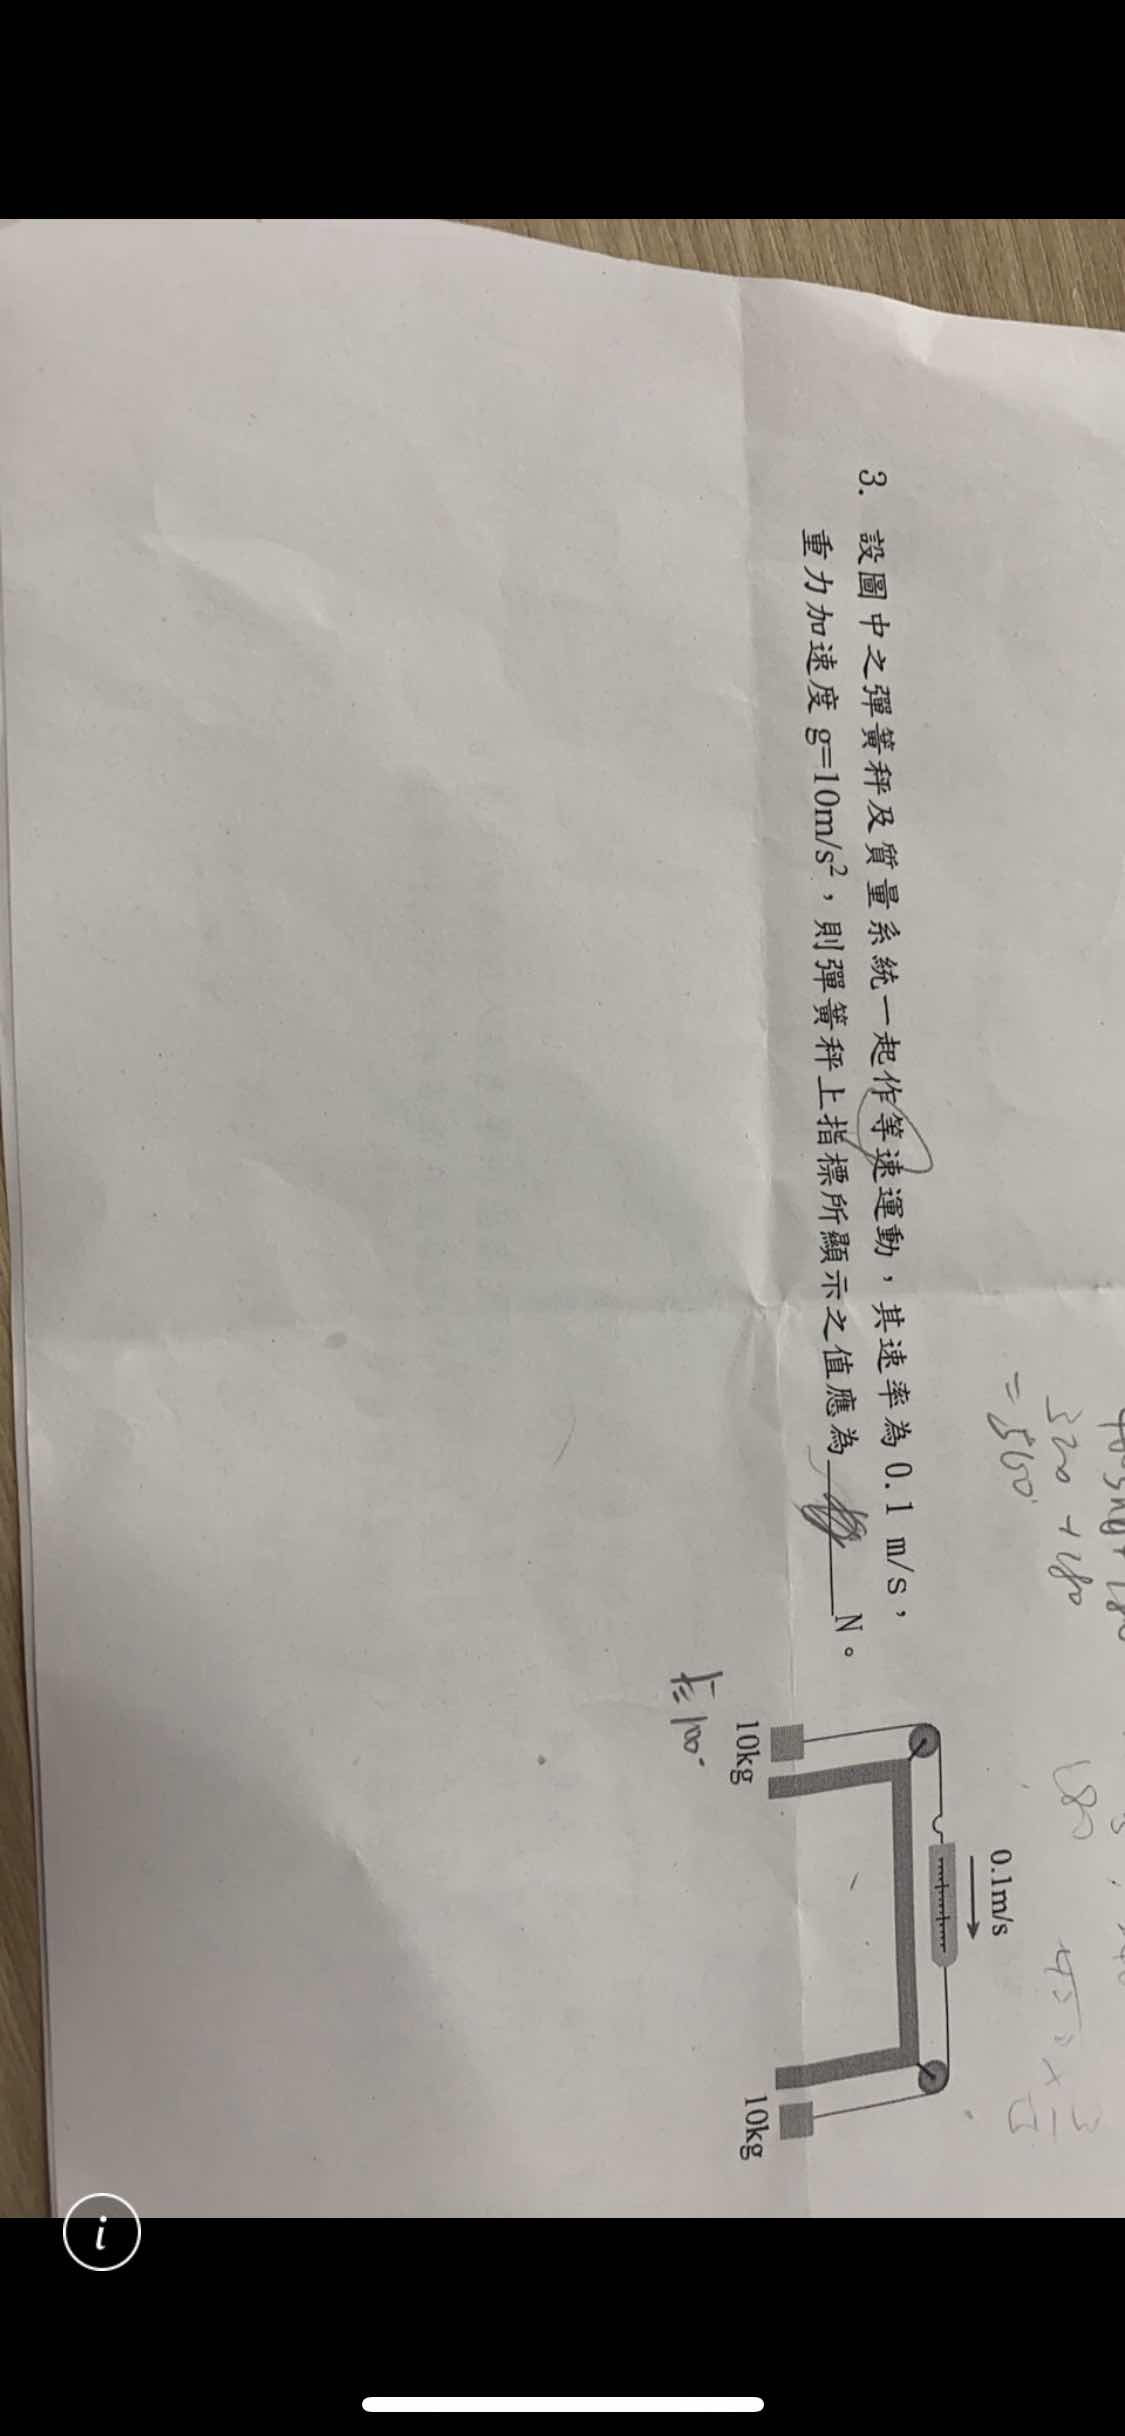 3. 設圖中之彈簧秤及質量系統一起作等速運動,其速率為0.1 m/s,
重力加速度 g=10m/s²,則彈簧秤上指標所顯示之值應為 N。
0.1m/s
10kg
10kg
320 + 180
= 560
180